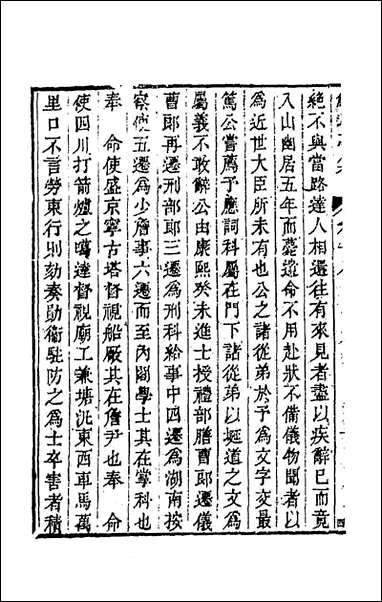 絶不與當路達人相還往有來見者盡以疾辭已而竟
入山幽居五年而薨遺命不用赴狀不備儀物聞者以
為近世大臣所未有也公之諸從弟於予為文字交最
篤公嘗薦予應詞科屬在門下諸從弟以埏道之文為
屬義不敢辭公由康熙癸未進士授禮部膳曹郎遷儀
曹郎再遷刑部郎三遷為刑科給事中四遷為湖南按
察使五遷為少詹事六遷而至內閣學士其在掌科也
奉　命使盛京寧古塔督視船厰其在詹尹也奉　命
使四川打箭爐之噶達督視廟工兼塘汛東西車馬萬
里口不言勞東行則劾奏勛衞駐防之為士卒害者積
四